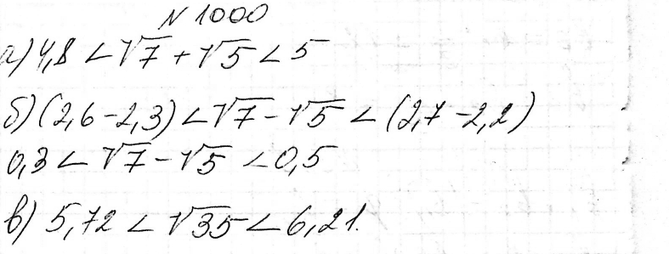 N 1000
а) 4,8 < √7 + √5 < 5
б) (2,6 - 2,3) < √7 - √5 < (2,7 - 2,2)
0,3 < √7 - √5 < 0,5
в) 5,72 < √35 < 6,21.